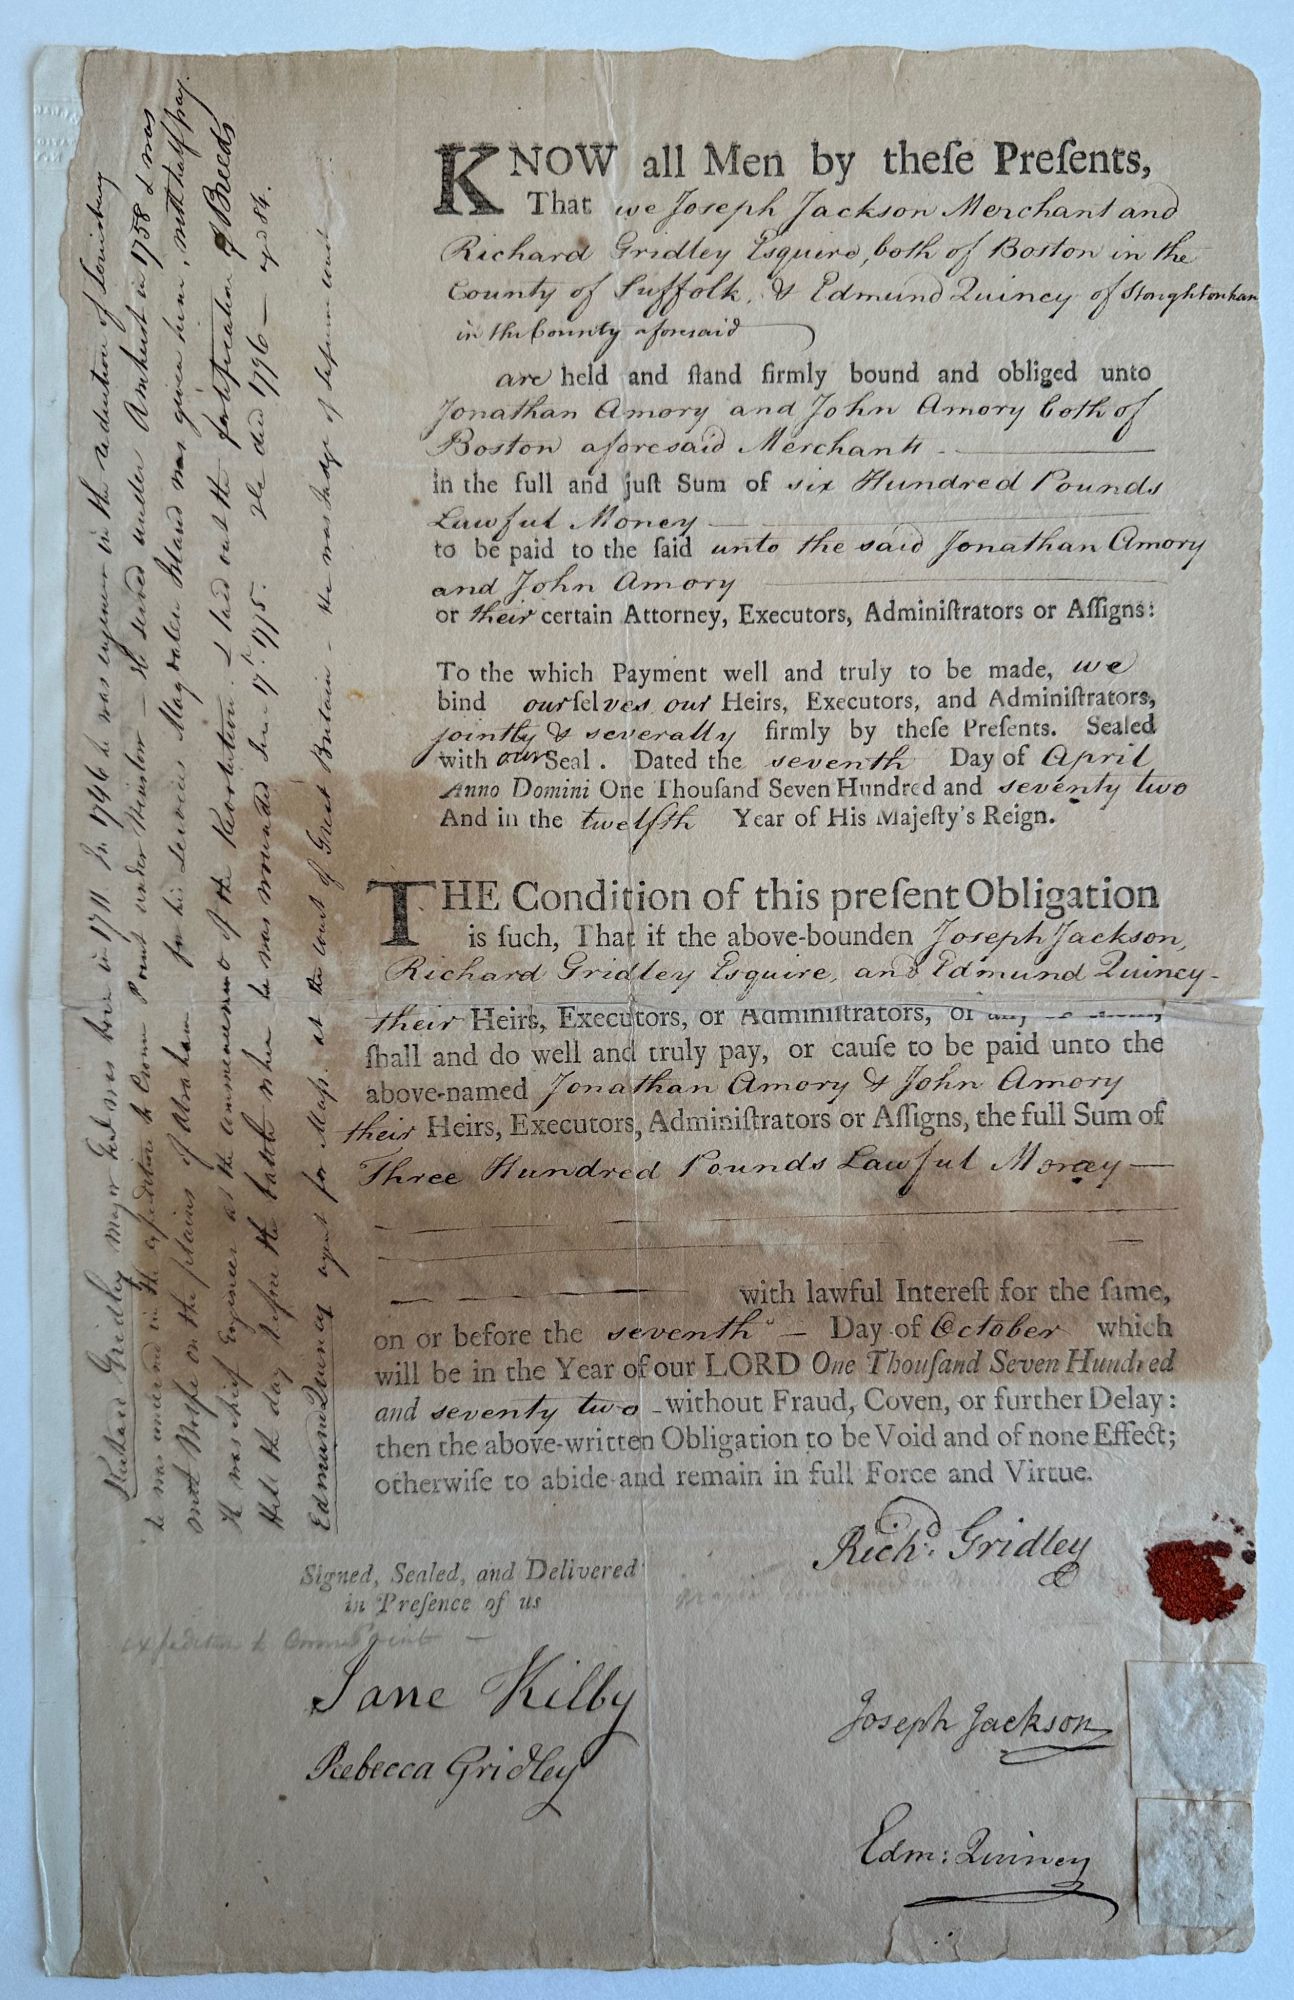 KNOW all Men by theſe Preſents,
That we Joseph Jackson Merchant and
Richard Gridley Esquire, both of Boston in the
County of Suffolk, & Edmund Quincy of Stoughtonham
in the County aforesaid
are held and ſtand firmly bound and obliged unto
Jonathan Amory and John Amory both of
Boston aforesaid Merchants
in the full and juſt Sum of six Hundred Pounds
Lawful Money
to be paid to the ſaid unto the said Jonathan Amory
and John Amory
or their certain Attorney, Executors, Adminiſtrators or Aſſigns:
To the which Payment well and truly to be made, we
bind ourſelves our Heirs, Executors, and Adminiſtrators,
jointly & severally firmly by theſe Preſents. Sealed
with our Seal. Dated the seventh Day of April
Anno Domini One Thouſand Seven Hundred and seventy two
And in the twelfth Year of His Majeſty's Reign.
THE Condition of this preſent Obligation
is ſuch, That if the above-bounden Joseph Jackson,
Richard Gridley Esquire, and Edmund Quincy
their Heirs, Executors, or Adminiſtrators, or any
ſhall and do well and truly pay, or cauſe to be paid unto the
above-named Jonathan Amory & John Amory
their Heirs, Executors, Adminiſtrators or Aſſigns, the full Sum of
Three Hundred Pounds Lawful Money
with lawful Intereſt for the ſame,
on or before the seventh Day of October which
will be in the Year of our LORD One Thouſand Seven Hundred
and seventy two without Fraud, Coven, or further Delay:
then the above-written Obligation to be Void and of none Effect;
otherwiſe to abide and remain in full Force and Virtue.
Richd. Gridley
Signed, Sealed, and Delivered
in Preſence of us
expedition to Crown Point
Jane Kilby
Rebecca Gridley
Joseph Jackson
Edm: Quincy
Richard Gridley Major Genl was born in 1711 In 1746 he was engineer in the reduction of Louisburg
he was engaged in the expedition to Crown Point under Winslow - He served under Amherst in 1758 & was
with Wolfe on the plains of Abraham for his services Magdalen Island was given him, with half pay.
He was chief Engineer at the commencement of the Revolution. & laid out the fortification of Breeds
Hill the day before the battle when he was wounded June 17th. 1775. He died 1796 - aged 84.
Edmund Quincy agent for Mass. at the Court of Great Britain - He was Judge of Supreme Court